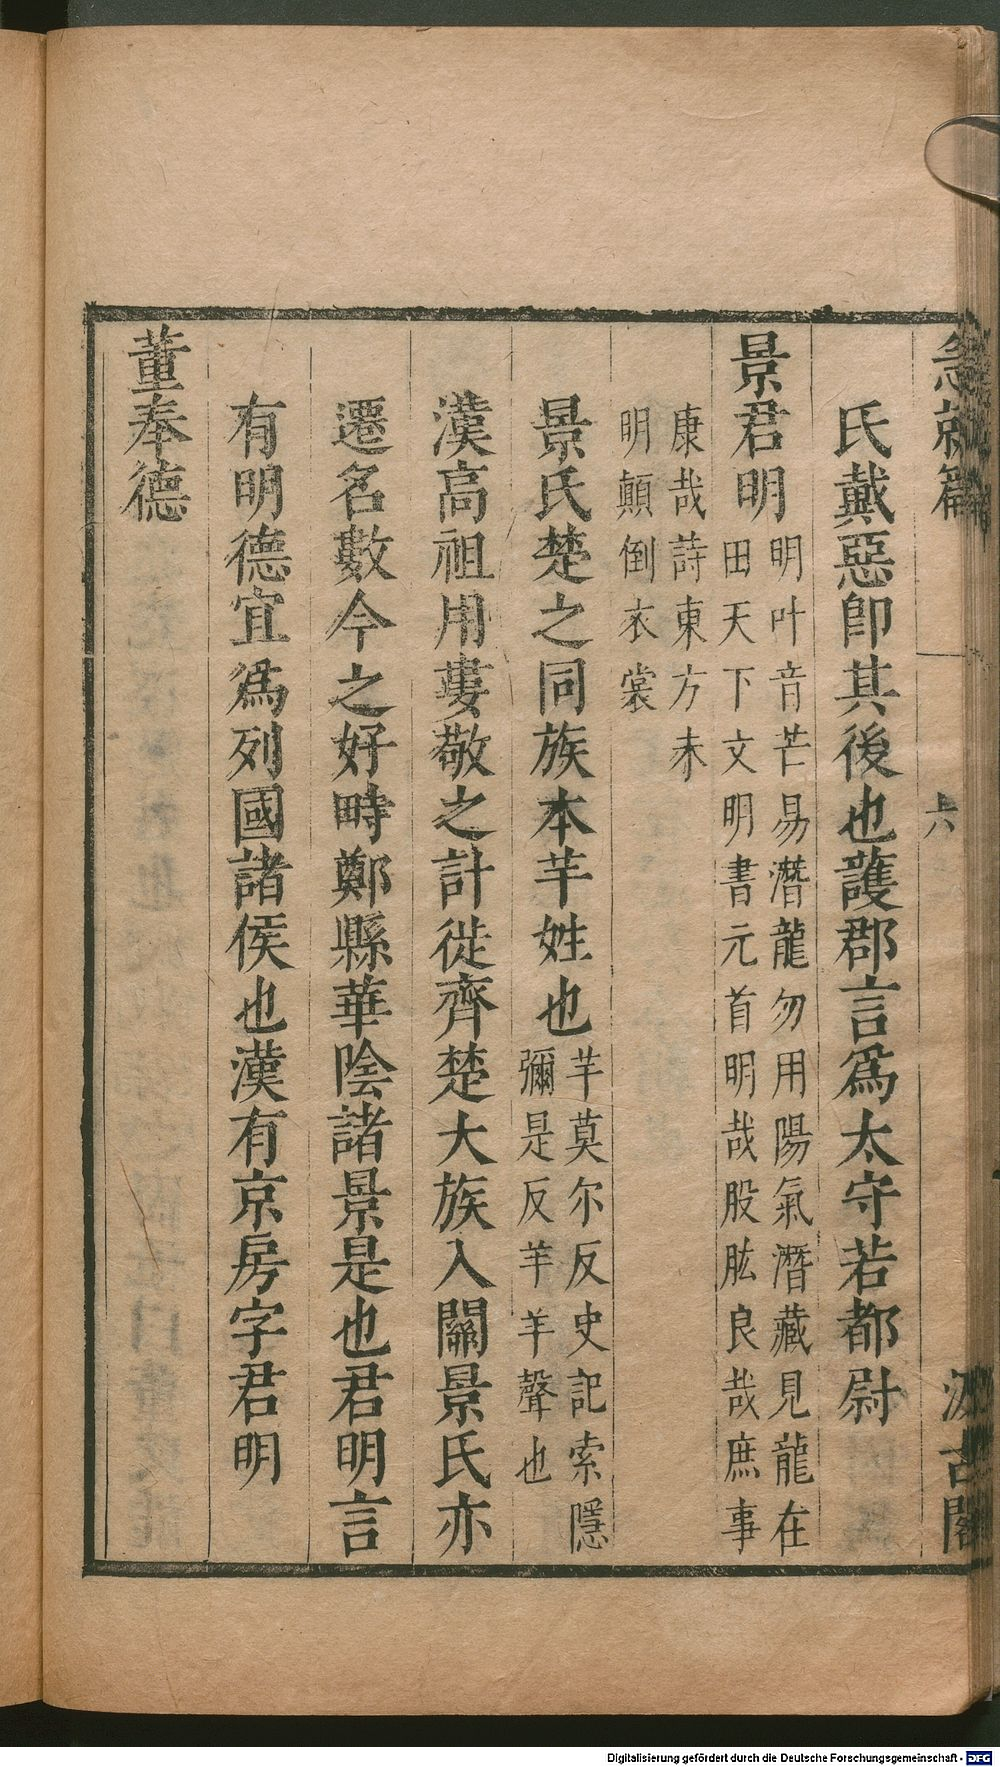 急就篇 六 汲古閣
氏戴惡卽其後也護郡言爲太守若都尉
景君明
明叶音芒易潛龍勿用陽氣潛藏見龍在
田天下文明書元首明哉股肱良哉庶事
康哉詩東方未
明顛倒衣裳
景氏楚之同族本芈姓也
芈莫尔反史記索隱
彌是反芈羊聲也
漢高祖用婁敬之計徙齊楚大族入關景氏亦
遷名數今之好畤鄭縣華陰諸景是也君明言
有明德宜爲列國諸侯也漢有京房字君明
董奉德
Digitalisierung gefördert durch die Deutsche Forschungsgemeinschaft - DFG